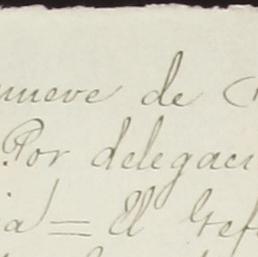 nueve de
Por delegaci
ia = El Gef